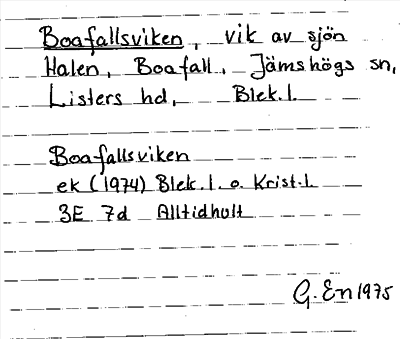 Boafallsviken, vik av sjön
Halen, Boafall, Jämshögs sn,
Listers hd, Blek.l.
Boafallsviken
ek (1974) Blek.l. o. Krist.l.
3E 7d Alltidhult
G. En 1975